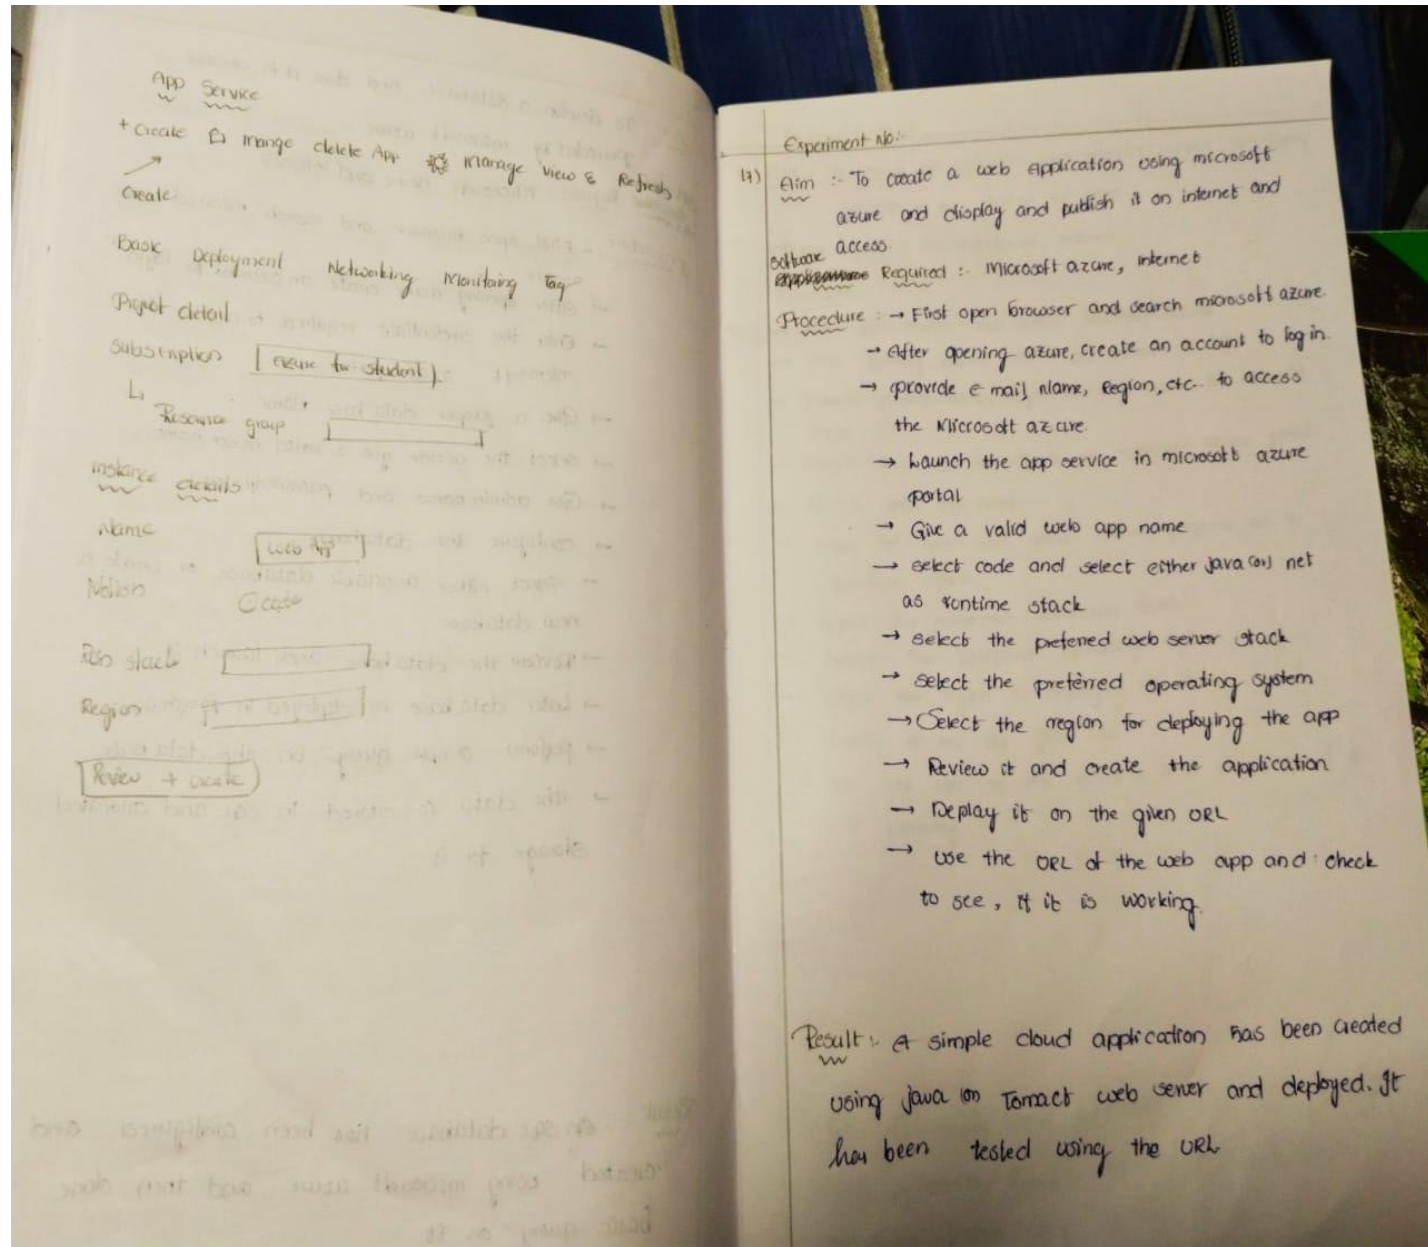 App Service
+ Create Mange delete App Manage view & Refresh
Create
Basic Deployment Networking Monitoring Tag
Project detail
Subscription azure for student
Resource group
Instance details
Name Web App
Run stack
Region
Review + create
Experiment No:-
17) Aim :- To create a web Application using microsoft
azure and display and publish it on internet and
access.
Software Required :- Microsoft azure, internet
Procedure :- → First open browser and search microsoft azure.
→ After opening azure, create an account to log in.
→ provide e-mail, Name, Region, etc. to access
the Microsoft azure.
→ Launch the app service in microsoft azure
portal
→ Give a valid web app name
→ select code and select either java (or) net
as runtime stack
→ select the prefened web server stack
→ select the preferred operating system
→ Select the region for deploying the app
→ Review it and create the application
→ Deplay it on the given URL
→ use the URL of the web app and check
to see, if it is working.
Result :- A simple cloud application has been created
using java on Tomact web server and deployed. It
has been tested using the URL